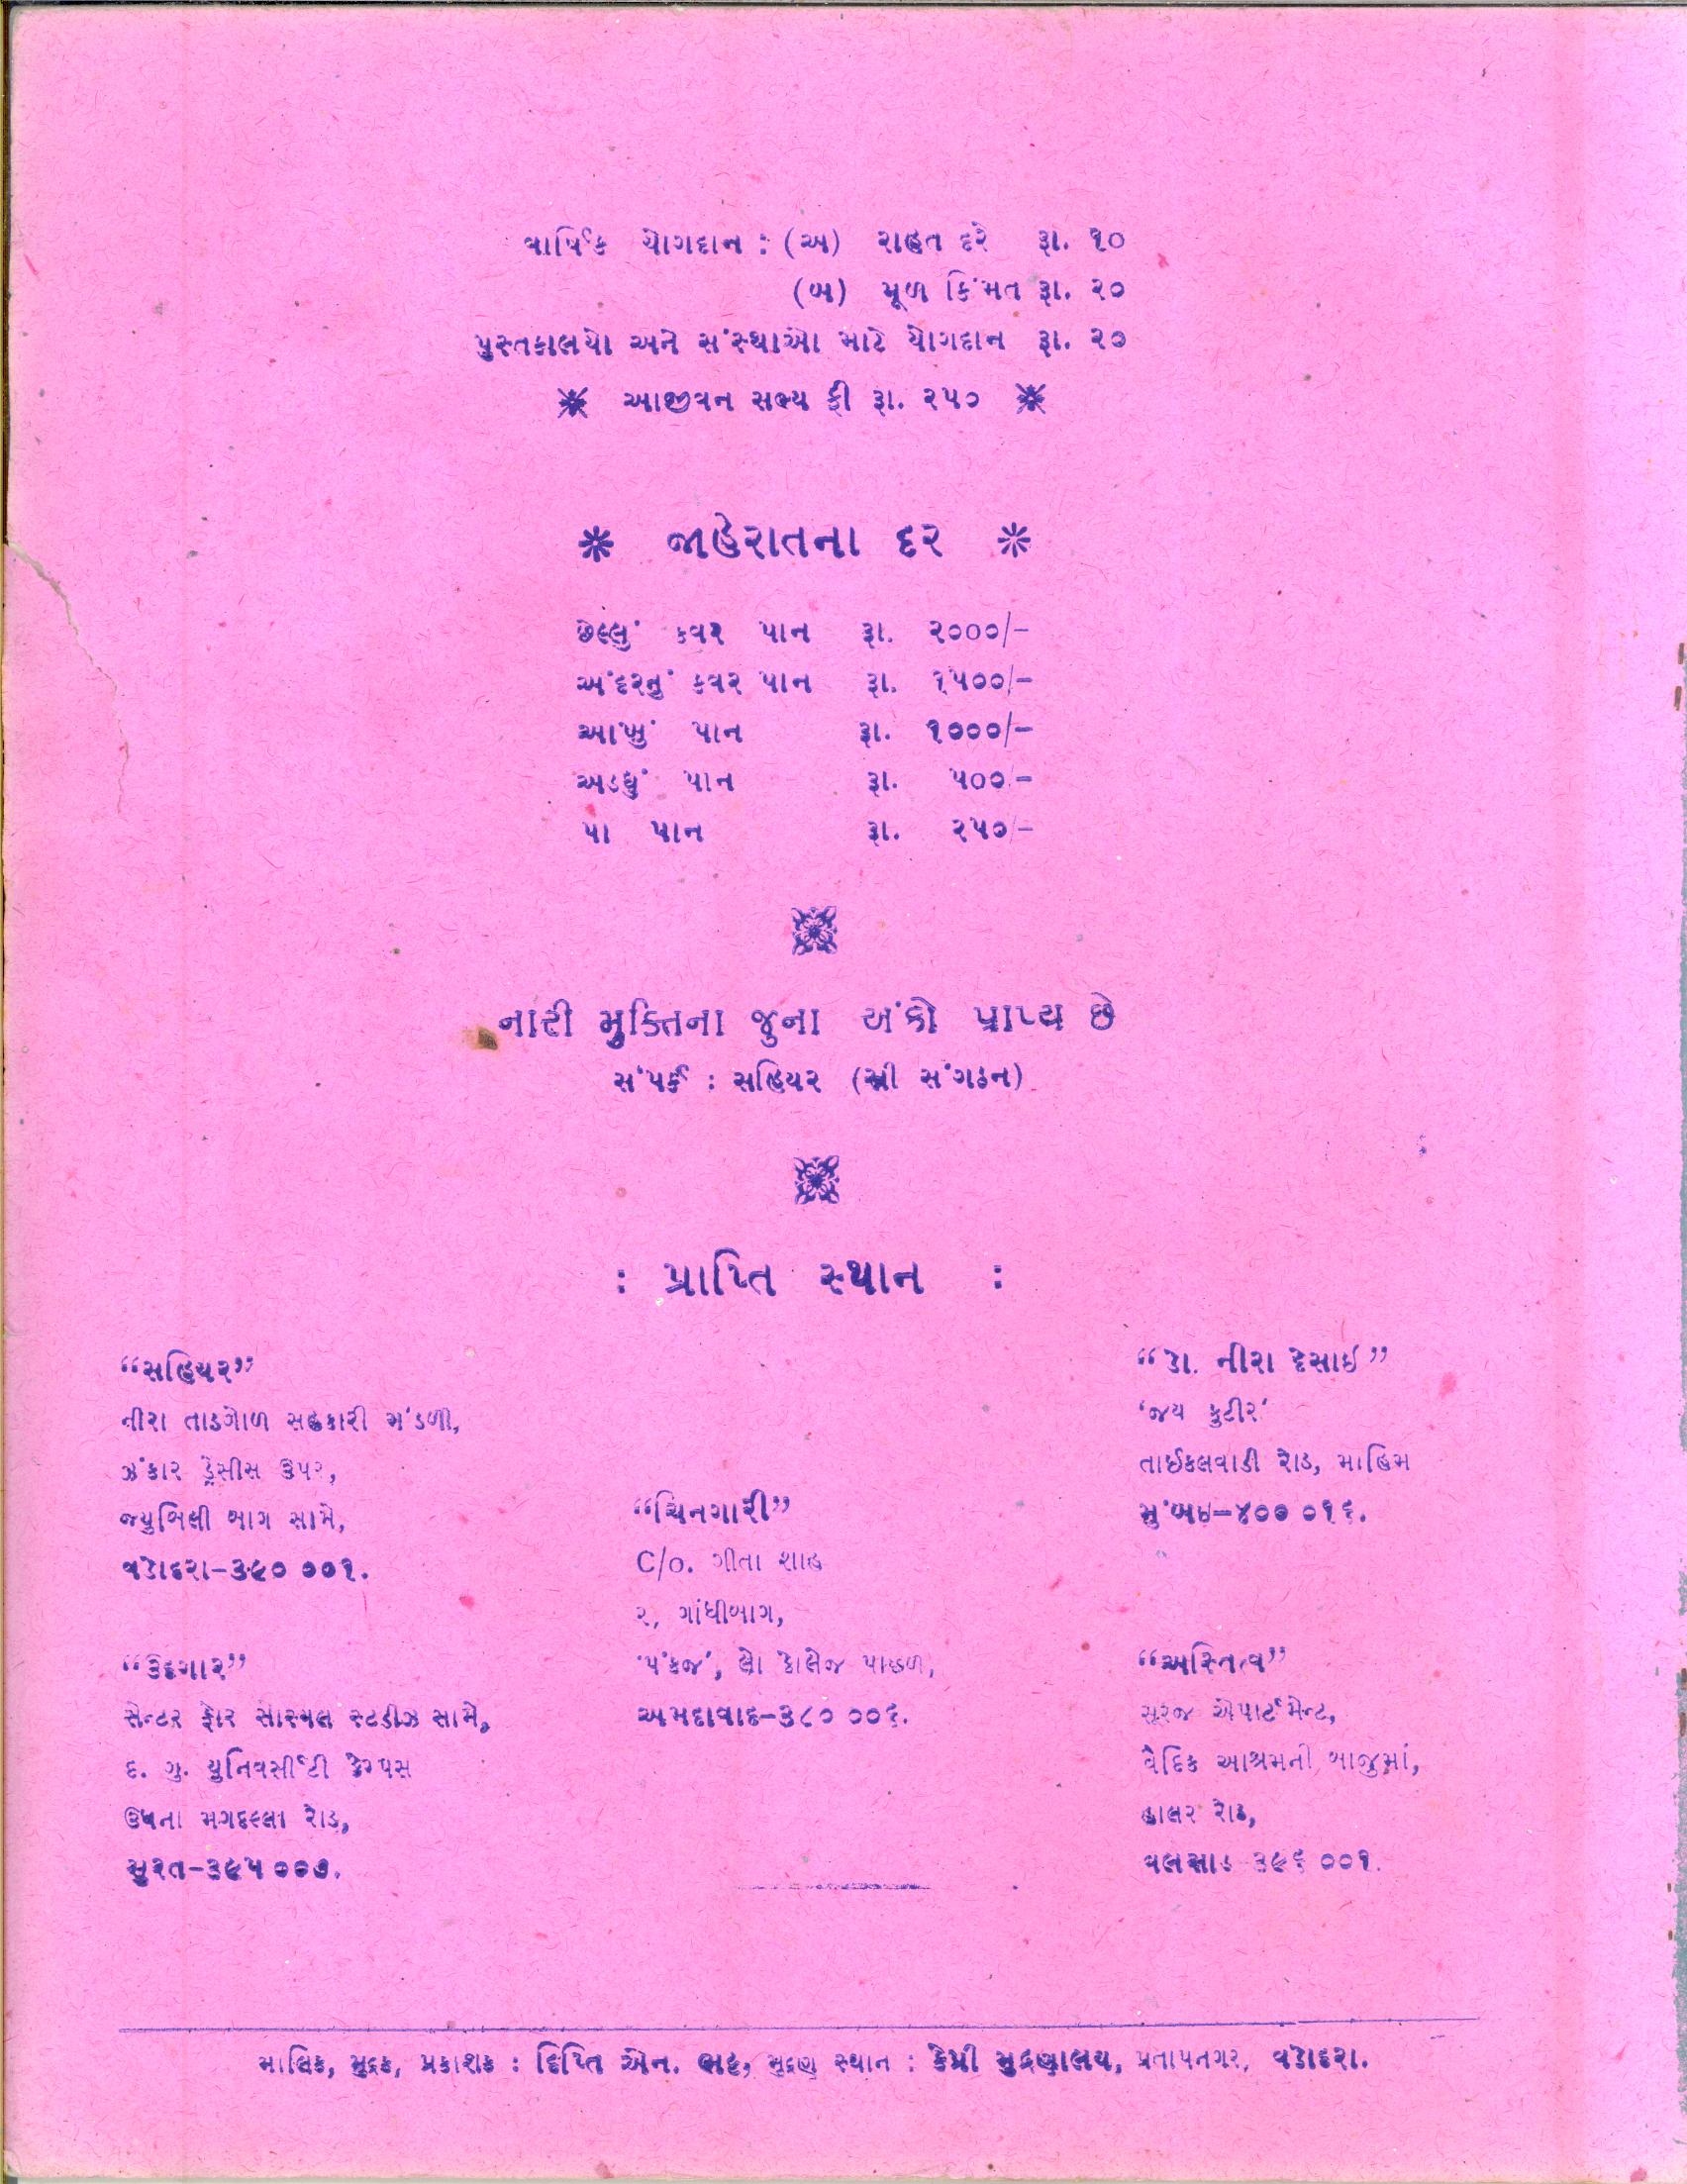 વાર્ષિક યોગદાન : (અ) રાહત દરે રૂા. ૧૦
(બ) મૂળ કિંમત રૂા. ૨૦
પુસ્તકાલયો અને સંસ્થાઓ માટે યોગદાન રૂા. ૨૦
આજીવન સભ્ય ફી રૂા. ૨૫૦
જાહેરાતના દર
છેલ્લું કવર પાન રૂા. ૨૦૦૦/-
અંદરનું કવર પાન રૂા. ૧૫૦૦/-
આખું પાન રૂા. ૧૦૦૦/-
અડધું પાન રૂા. ૫૦૦/-
પા પાન રૂા. ૨૫૦/-
નારી મુક્તિના જુના અંકો પ્રાપ્ય છે
સંપર્ક : સહિયર (સ્ત્રી સંગઠન)
: પ્રાપ્તિ સ્થાન :
“સહિયર”
નીરા તાડગોળ સહકારી મંડળી,
ઝંકાર ડ્રેસીસ ઉપર,
જ્યુબિલી બાગ સામે,
વડોદરા-૩૯૦ ૦૦૧.
“ઉદગાર”
સેન્ટર ફોર સોસ્યલ સ્ટડીઝ સામે,
દ. ગુ. યુનિવર્સીટી કેમ્પસ
ઊધના મગદલ્લા રોડ,
સુરત-૩૯૫ ૦૦૭.
“ચિનગારી”
C/o. ગીતા શાહ
૨, ગાંધીબાગ,
‘પંકજ’, લો કોલેજ પાછળ,
અમદાવાદ-૩૮૦ ૦૦૬.
“ડો. નીરા દેસાઈ”
‘જય કુટીર’
તાઈકલવાડી રોડ, માહિમ
મુંબઈ-૪૦૦ ૦૧૬.
“અસ્તિત્વ”
સૂરજ એપાર્ટમેન્ટ,
વૈદિક આશ્રમની બાજુમાં,
હાલર રોડ,
વલસાડ-૩૯૬ ૦૦૧.
માલિક, મુદ્રક, પ્રકાશક : દિપ્તિ એન. ભટ્ટ, મુદ્રણ સ્થાન : કેમ્રી મુદ્રણાલય, પ્રતાપનગર, વડોદરા.